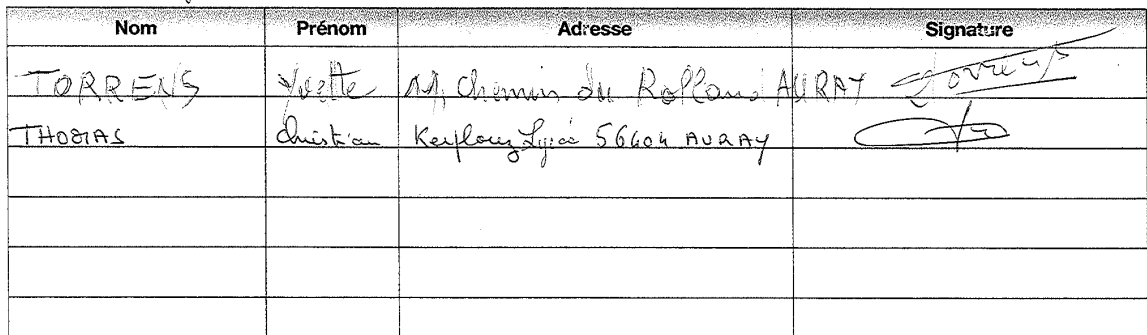 Nom Prénom Adresse Signature
TORRENS Yvette 11, Chemin du Rolland AURAY Torrens
THOMAS Christian Kerplouz 56404 AURAY